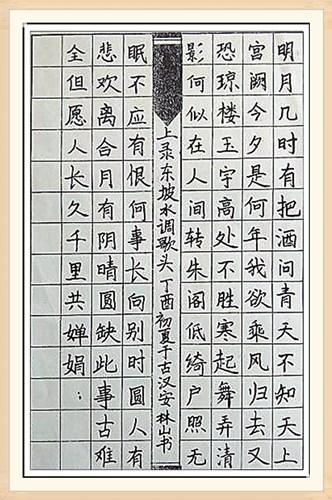 明月几时有把酒问青天不知天上
宫阙今夕是何年我欲乘风归去又
恐琼楼玉宇高处不胜寒起舞弄清
影何似在人间转朱阁低绮户照无
上录东坡水调歌头丁酉初夏于古汉安林山书
眠不应有恨何事长向别时圆人有
悲欢离合月有阴晴圆缺此事古难
全但愿人长久千里共婵娟；